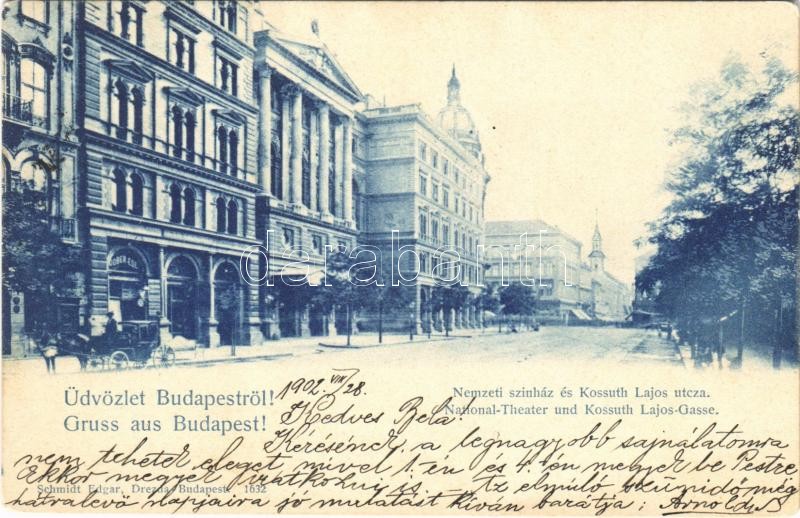 darabanth
Üdvözlet Budapestről!
Gruss aus Budapest!
Nemzeti szinház és Kossuth Lajos utcza.
National-Theater und Kossuth Lajos-Gasse.
1902 VIII/28.
Kedves Bela!
Kérésének a legnagyobb sajnálatomra
nem tehetek eleget mivel 1.-én és 4.-én megyek be Pestre
Ekkor megyek iratkozni is. Az elmúló szünidő még
hátralévő napjaira jó mulatást kíván barátja: Arnold B
Schmidt Edgar, Drezda-Budapest 1632